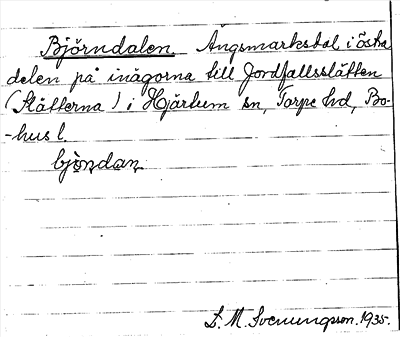 Björndalen. Ängsmarksdal i östra
delen på inägorna till Jordfallsslätten
(Slätterna) i Hjärtum sn, Torpe hd, Bo-
-hus l.
bjö̀ṇdan
L. M. Svenungsson. 1935.